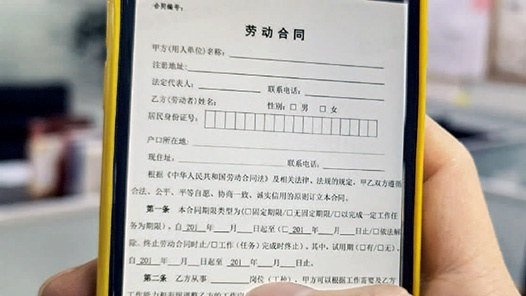 合同编号：
劳动合同
甲方(用人单位)名称：
注册地址：
法定代表人： 联系电话：
乙方(劳动者)姓名： 性别：□男 □女
居民身份证号：
户口所在地：
现住址： 联系电话：
根据《中华人民共和国劳动合同法》及相关法律、法规的规定，甲乙双方遵循
合法、公平、平等自愿、协商一致、诚实信用的原则订立本合同。
第一条 本合同期限类型为(□固定期限/□无固定期限/□以完成一定工作任
务为期限)。自 201 年 月 日起至(□ 201 年 月 日止/□依法解
除、终止劳动合同时止/□工作(任务)完成时终止)。其中，试用期(□有/□无)，
自 201 年 月 日起至 201 年 月 日止。
第二条 乙方从事 岗位(工种)，甲方可以根据工作需要及乙方
工作能力和表现调整乙方的工作